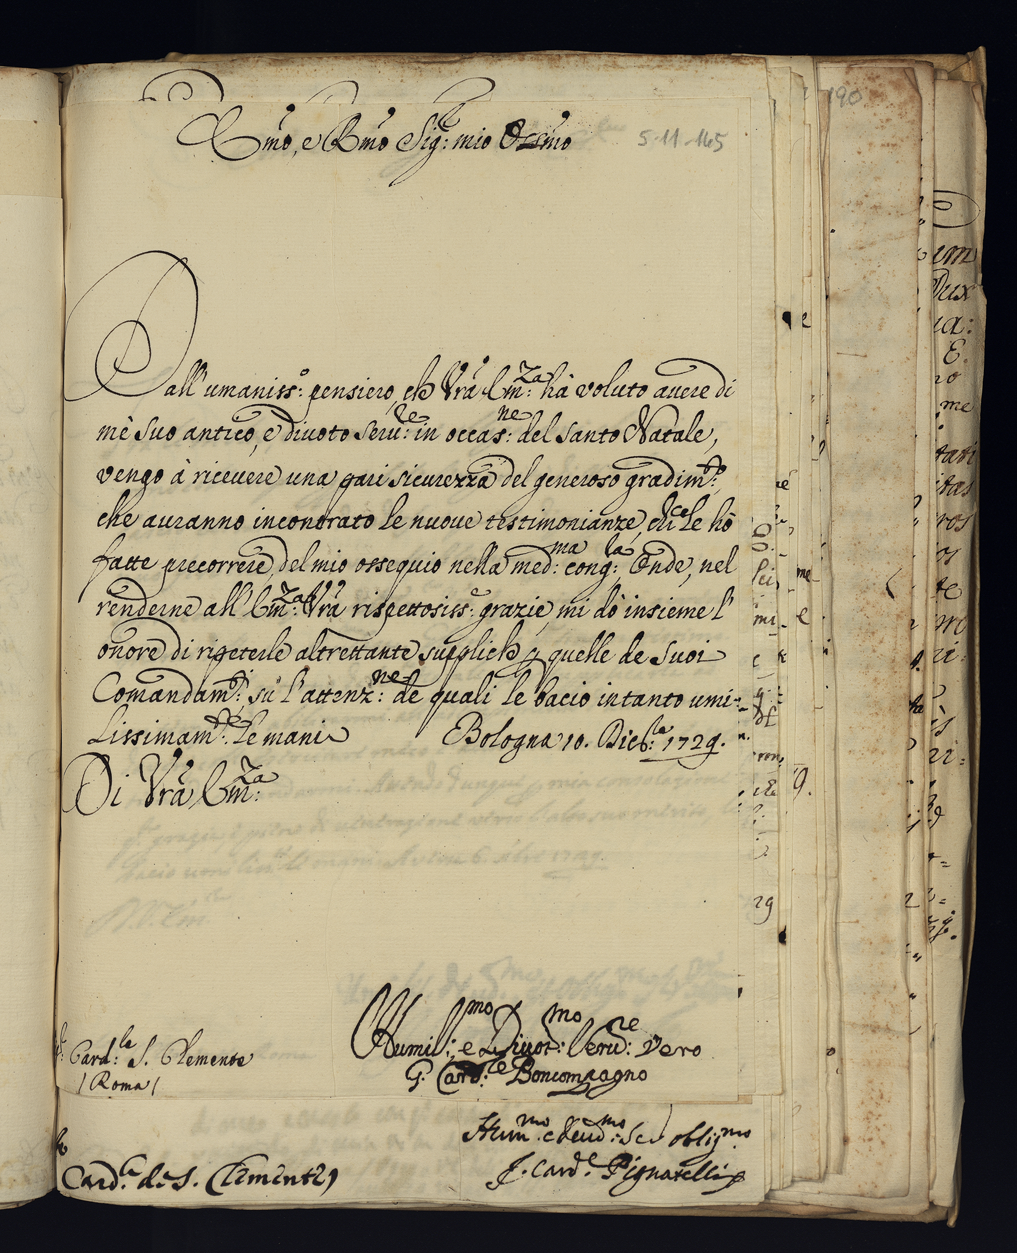 Em̃o, e Rm̃o Sig.r mio Ossm̃o
5-11-145
190
Dall'umaniss.o pensiero, che Vrã Em̃.za hà voluto avere di
mè suo antico, e divoto serv.re in occas.ne del santo Natale,
vengo à ricevere una pari sicurezza del generoso gradim.to,
che avranno incontrato le nuove testimonianze, che le hò
fatte precorrere, del mio ossequio nella med.ma cong.la Onde, nel
renderne all'Em̃.za Vrã rispettosiss.e grazie, mi dò insieme l'
onore di ripeterle altrettante suppliche p quelle de suoi
Comandam.ti su l'attenz.ne de quali le bacio intanto umi-
lissimam.te le mani Bologna 10. Dicb.re 1729.
Di Vrã Em̃.za
Humil.mo e Divot.mo Serv.re Vero
G. Card.le Boncompagno
Card.le S. Clemente
/Roma/
Hum.mo e Deud.mo Ser oblig.mo
F. Card.le Pignatelli
Card.le di S. Clemente